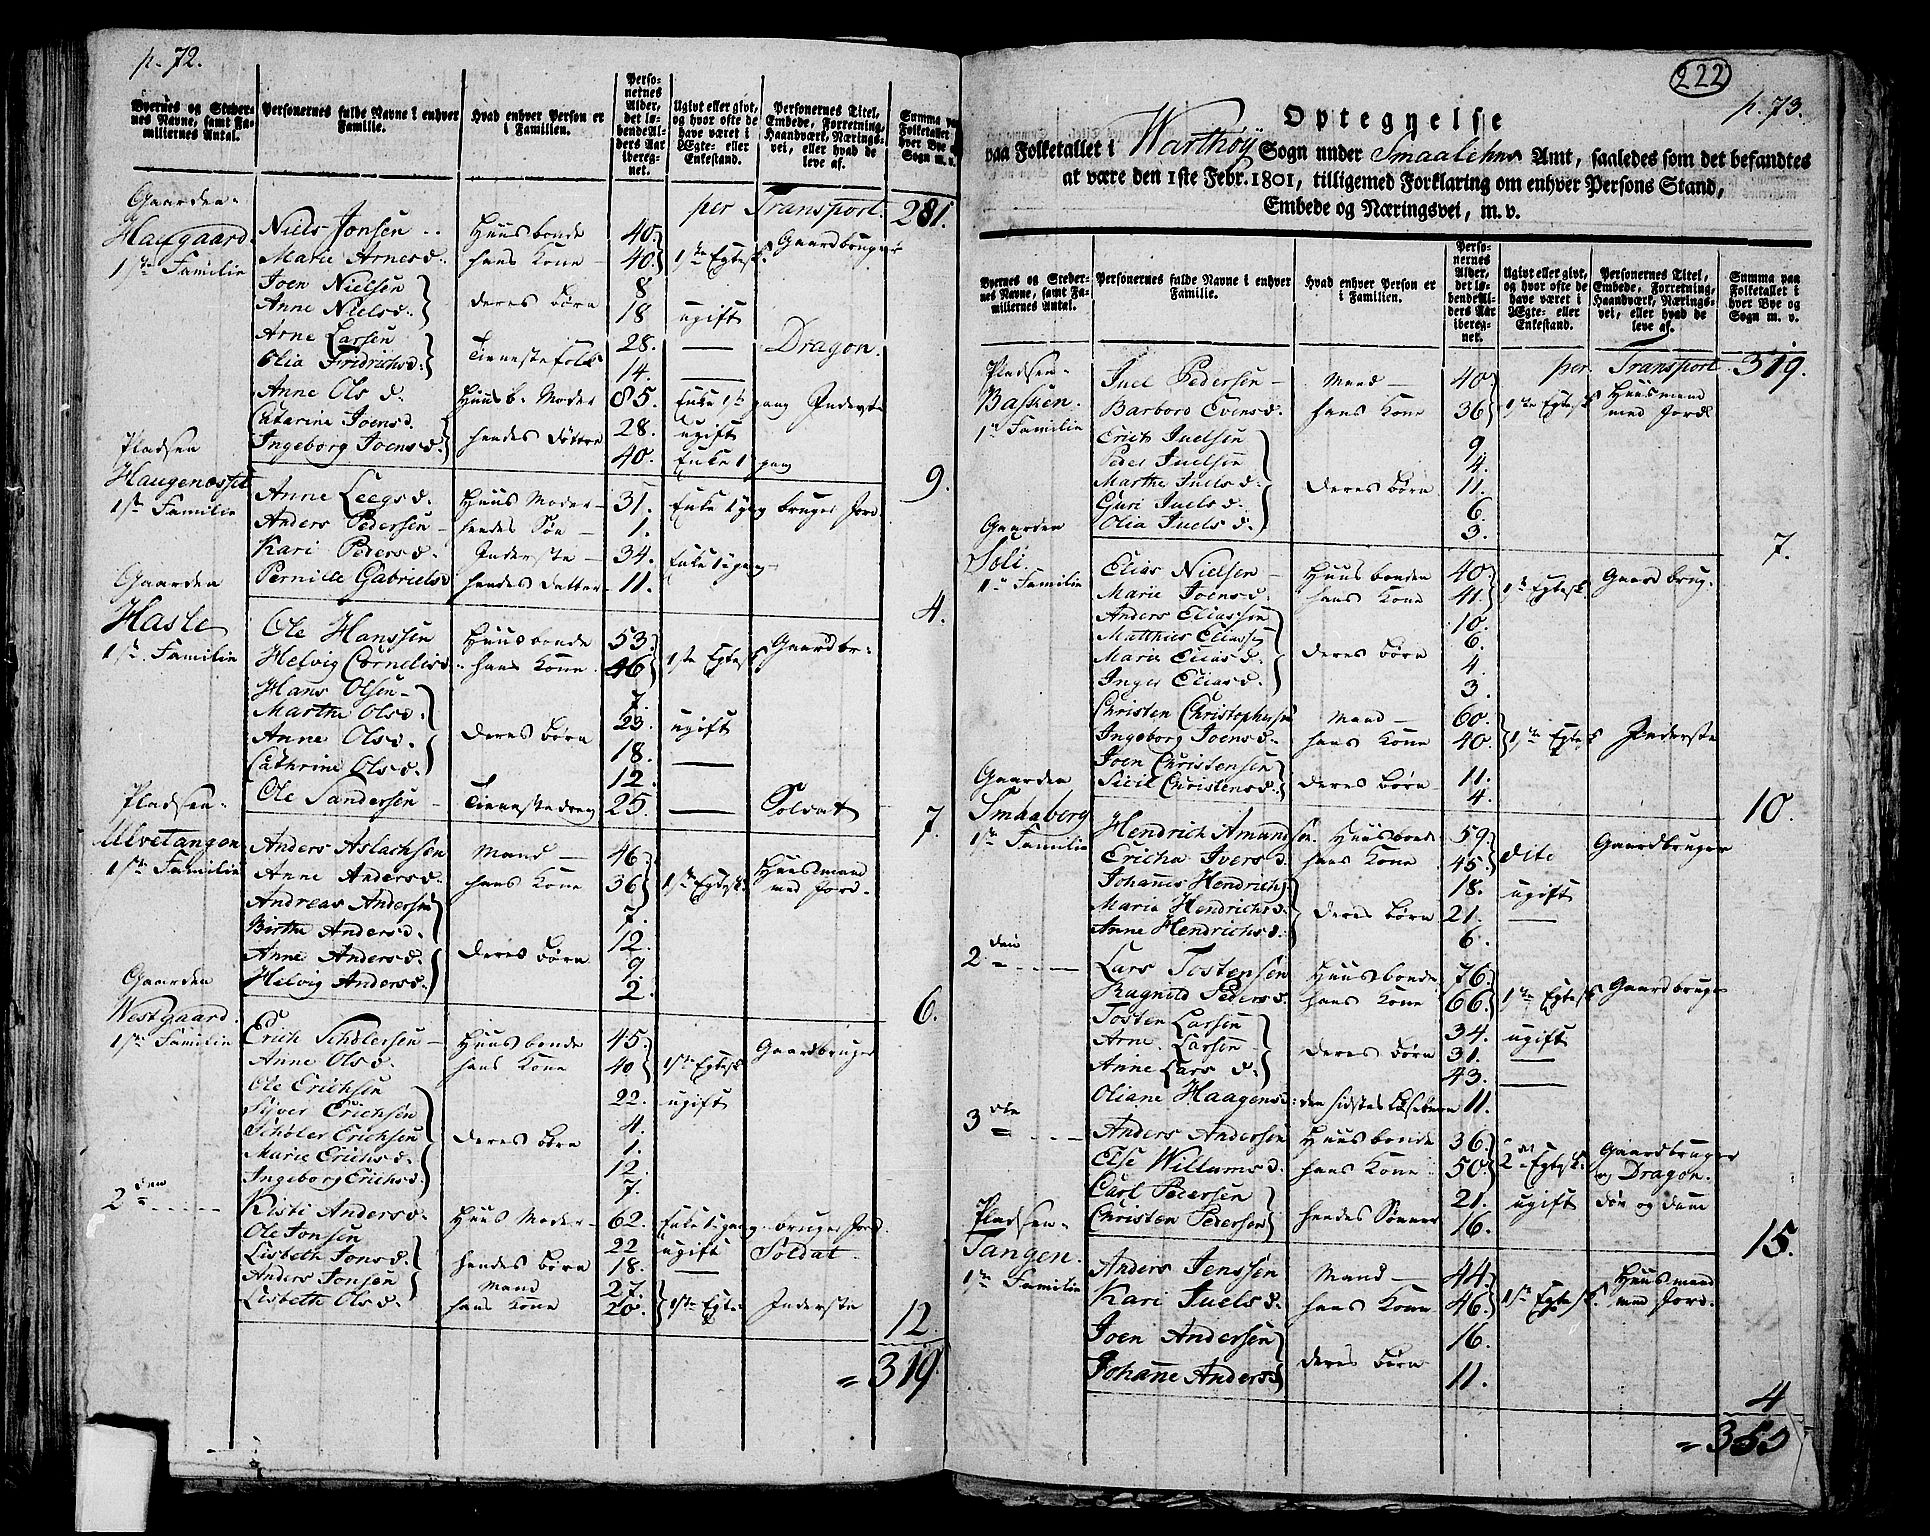 p. 72.
Byernes og Stedernes Navne, samt Familiernes Antal.
Personernes fulde Navne i enhver Familie.
Hvad enhver Person er i Familien.
Personernes Alder, det løbende Alders Aar iberegnet.
Ugivt eller givt, og hvor ofte de have været i Egte- eller Enkestand.
Personernes Titel, Embede, Forretning, Haandværk, Næringsvei, eller hvad de leve af.
Summa paa Folketallet i hver Bye og Sogn m. v.
per Transport. 281.
Gaarden
Haugaard. Niels Jonsen Huusbonde 40. 1ste Egtesk. Gaardbruger
1ste Familie Marie Arnesd. hans Kone 40.
Joen Nielsen deres børn 8
Anne Nielsd. 18 ugift
Arne Larsen Tienestefolk 28. — Dragon.
Olia Fridrichsd. 14. —
Anne Ols d. Huusb. Moder 85. Enke 1ste gang Inderste
Catarine Joensd. hendes Døttre 28. ugift
Ingeborg Joensd. 40. Enke 1 gang
9.
Pladsen
Haugenæsset Anne Leegsd. Huus Moder 31. Enke 1 gang bruger Jord
1ste Familie Anders Pedersen hendes Søn 1.
Kari Pedersd. Inderste 34. Enke 1 gang
Pernille Gabrielsd hendes Datter 11.
4.
Gaarden
Hasle Ole Hanssen Huusbonde 53. 1ste Egtesk Gaardbr.
1ste Familie Helvig Cornelisd. hans Kone 46
Hans Olsen 7.
Marthe Olsd. deres børn 23. ugift
Anne Olsd. 18. —
Cathrine Olsd. 12.
Ole Sandersen Tienestedreng 25. — Soldat
7.
Pladsen
Ulvetangen Anders Aslachsen Mand 46. 1ste Egtesk. Huusmand med Jord.
1ste Familie Anne Andersd. hans Kone 36
Andreas Andersen 7.
Birthe Andersd. deres børn 12.
Anne Andersd. 9
Helvig Andersd. 2.
6.
Gaarden
Westgaard. Erich Schölersen Huusbonde 45. 1ste Egtesk Gaardbruger
1ste Familie Anne Olsd. hans Kone 40
Ole Erichsen 22. ugift
Siver Erichsen 4.
Schöler Erichsen deres børn 1.
Marie Erichsd. 12.
Ingeborg Erichsd. 7.
2den Kisti Andersd. Huus Moder 62. Enke 1 gang. bruger Jord
Ole Jonsen 22 ugift Soldat.
Lisbeth Jonsd. hendes børn 18. —
Anders Jonsen Mand 27. 1ste Egte. Inderste
Lisbeth Olsd. hans Kone 20.
12.
= 319.
222
p. 73.
Optegnelse
paa Folketallet i Warthøy Sogn under Smaalehns Amt, saaledes som det befandtes
at være den 1ste Febr. 1801, tilligemed Forklaring om enhver Persons Stand,
Embede og Næringsvei, m. v.
Byernes og Stedernes Navne, samt Familiernes Antal.
Personernes fulde Navne i enhver Familie.
Hvad enhver Person er i Familien.
Personernes Alder, det løbende Alders Aar iberegnet.
Ugivt eller givt, og hvor ofte de have været i Egte- eller Enkestand.
Personernes Titel, Embede, Forretning, Haandværk, Næringsvei, eller hvad de leve af.
Summa paa Folketallet i hver Bye og Sogn m. v.
per Transport 319.
Pladsen
Basken. Juel Pedersen Mand 40 1ste Egtesk Huusmand med Jord
1ste Familie Barbord Evensd. hans Kone 36
Erich Juelsen 9
Peder Juelsen 4.
Marthe Juelsd. deres børn 11.
Guri Juelsd. 6.
Olia Juelsd. 3.
7.
Gaarden
Soli. Elias Nielsen Huusbonden 40. 1ste Egtesk. Gaardbrug.
1ste Familie Marie Joensd. hans Kone 41
Anders Eliassen 10.
Matthies Eliassen 6.
Marie Eliasd. deres børn 4.
Inger Eliasd. 3.
Christen Christophersen Mand 60. 1ste Egtesk Inderste
Ingeborg Joensd. hans Kone 40.
Joen Christensen deres børn 11.
Sicil Christensd. 4.
10.
Gaarden
Smaaberg Hendrich Amundsen. Huusbonde 59. dito Gaardbruger
1ste Familie Ericha Iversd. hans Kone 45.
Johannes Hendrichs. 18. ugift
Marie Hendrichsd. deres børn 21. —
Anne Hendrichsd. 6.
2den Lars Tostensen Huusbonde 76. 1ste Egtesk Gaardbruger
Ragnild Pedersd. hans Kone 66.
Tosten Larsen 34. ugift
Arne Larsen deres børn 31. —
Anne Larsd. 43. —
Oliane Haagensd. den sidstes 11.
3die Anders Andersen Huusbonde 36. 2den Egtesk. Gaardbruger og Dragon.
Else Willumsd. hans Kone 50.
Carl Pedersen hendes Sønner 21. ugift
Christen Pedersen 16.
15.
Pladsen
Tangen. Anders Jenssen Mand 44. 1ste Egtesk. Huusmand med Jord.
1ste Familie Kari Juelsd. hans Kone 46.
Joen Andersen deres børn 16.
Johanne Andersd 11.
4
= 355